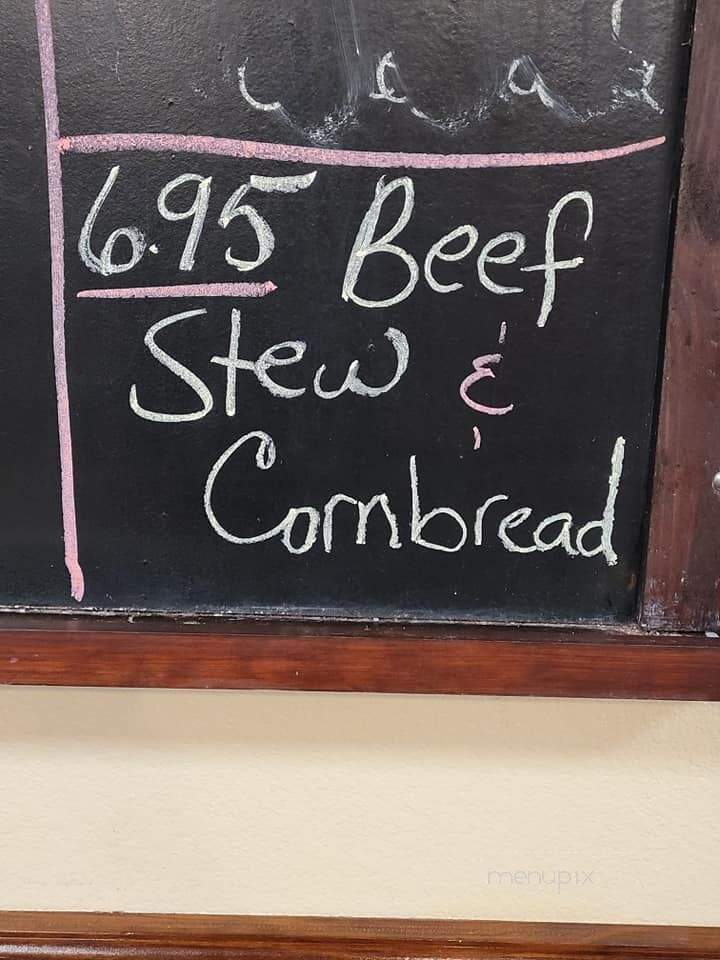 6.95 Beef
Stew &
Cornbread
menupix